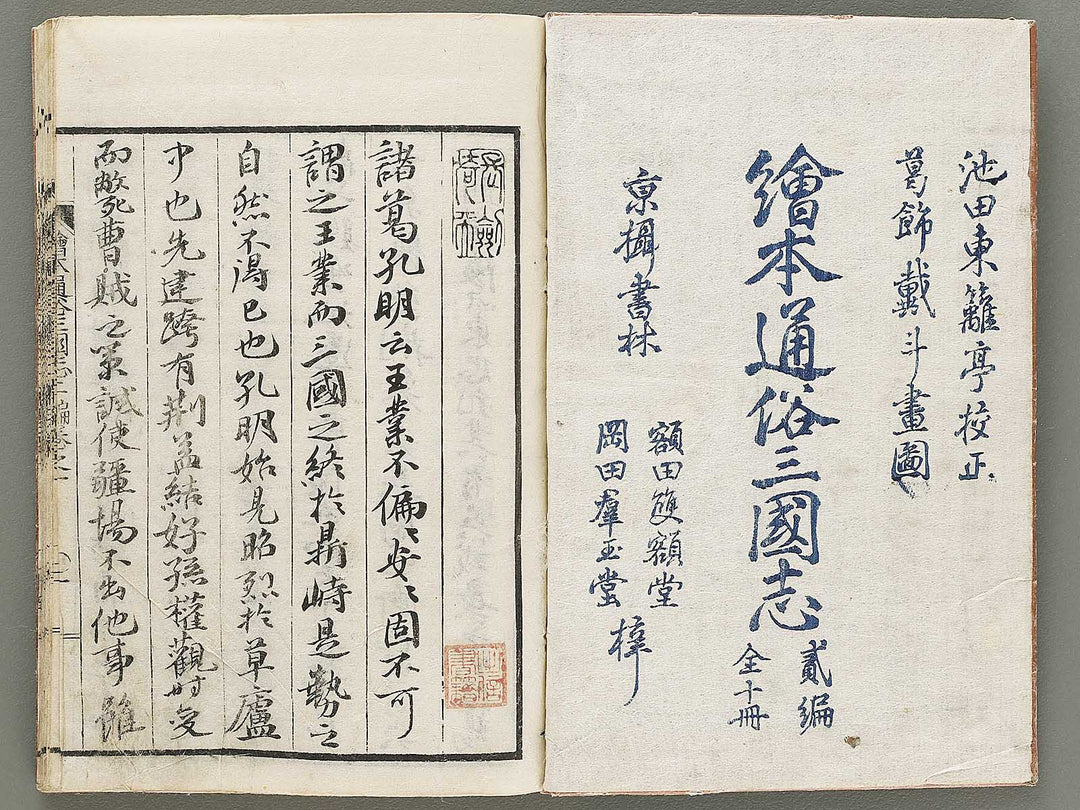 池田東籬亭校正
葛飾戴斗畫圖
繪本通俗三國志
貳編
全十冊
京攝書林
額田雙額堂
岡田羣玉堂
梓
諸葛孔明云王業不偏〻安〻固不可
謂之王業而三國之終於鼎峙是勢之
自然不得已也孔明始見昭烈於草廬
中也先建跨有荊益結好孫權觀時變
而斃曹賊之策誠使疆場不出他事雖